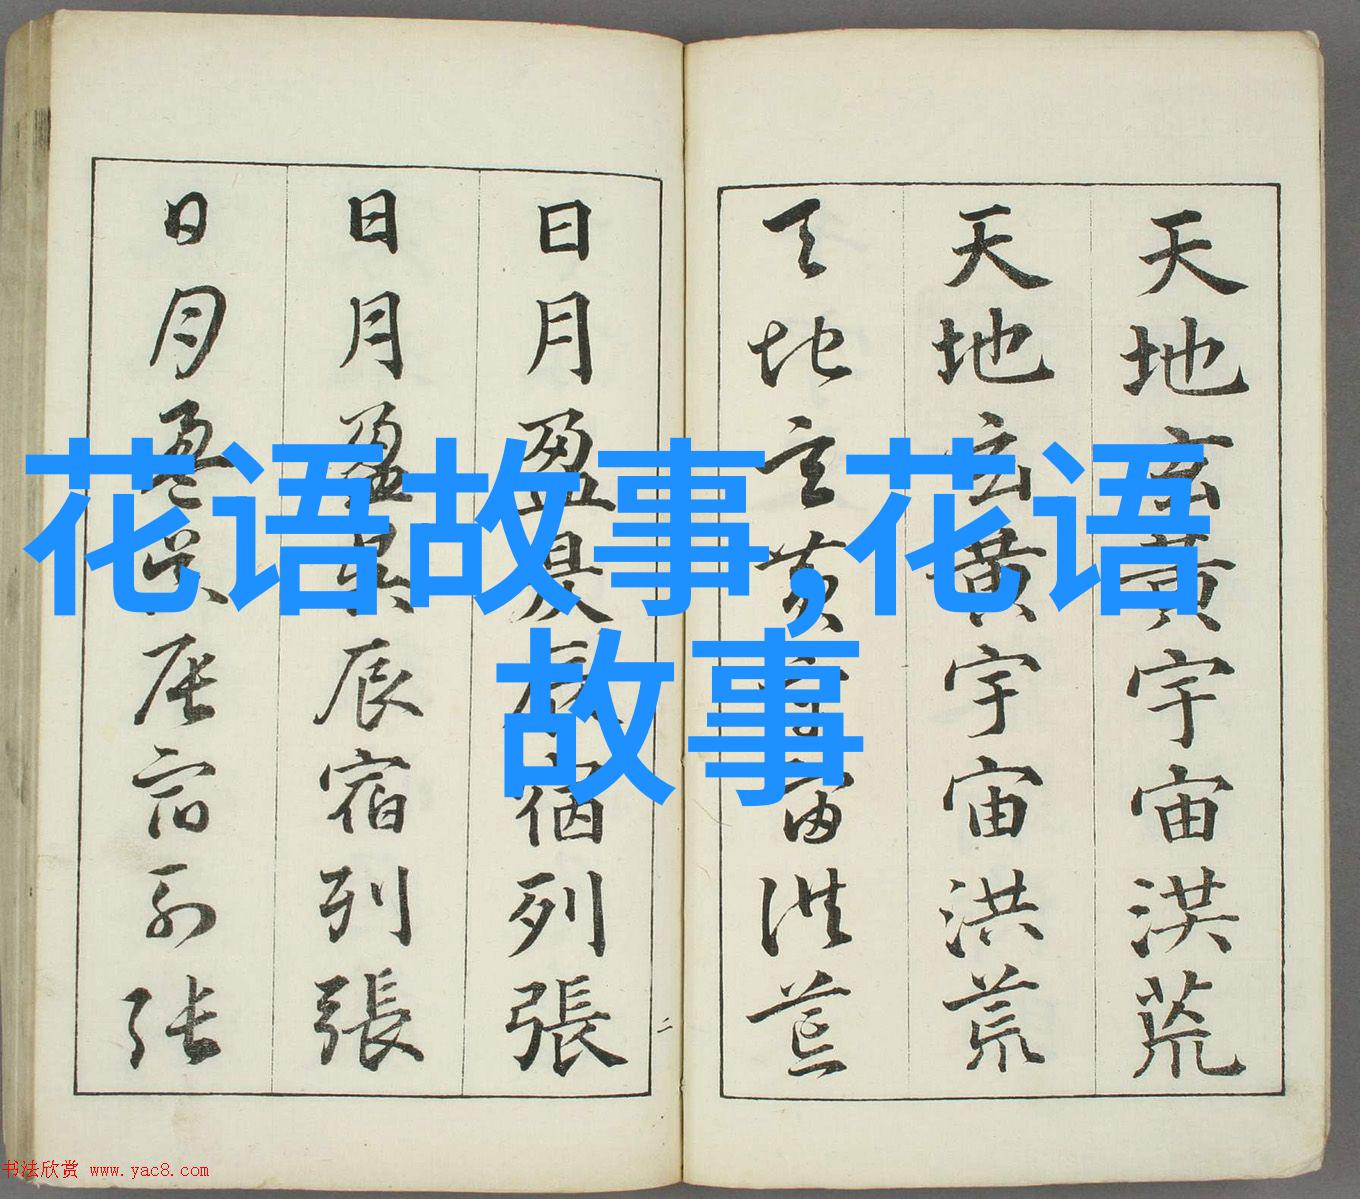 天地玄黃宇宙洪荒
天地玄黃宇宙洪荒
天地玄黃宇宙洪荒
日月盈昃辰宿列張
日月盈昃辰宿列張
日月盈昃辰宿列張
二
花语故事,花语
故事
书法欣赏 www.yac8.com